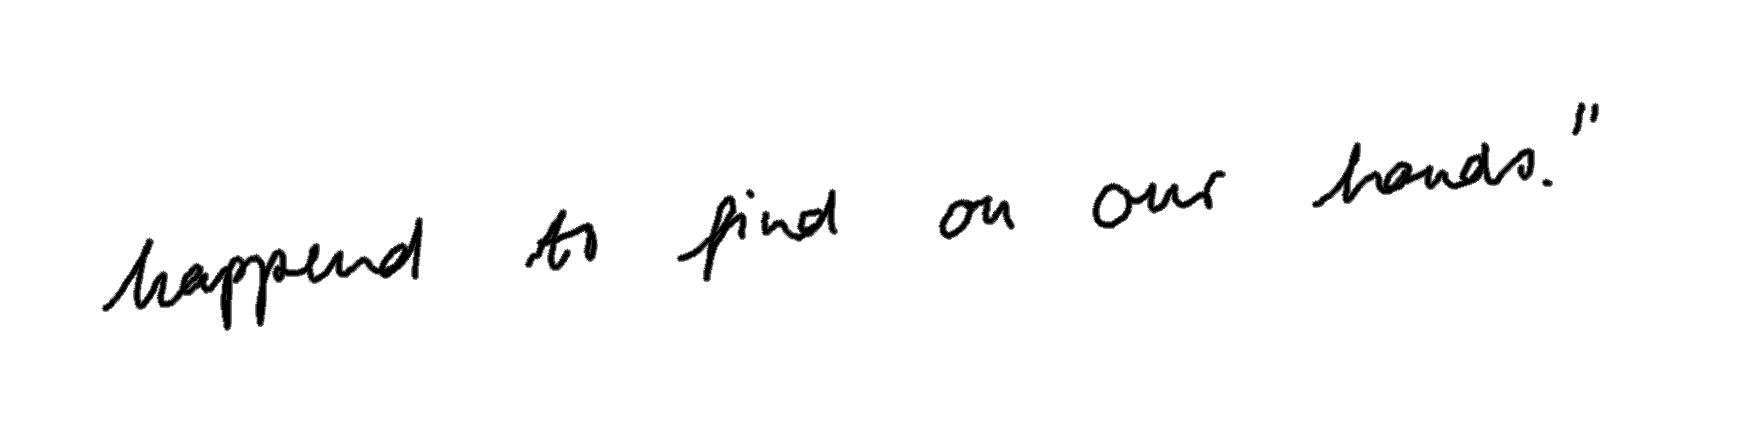 happend to find on our hands."